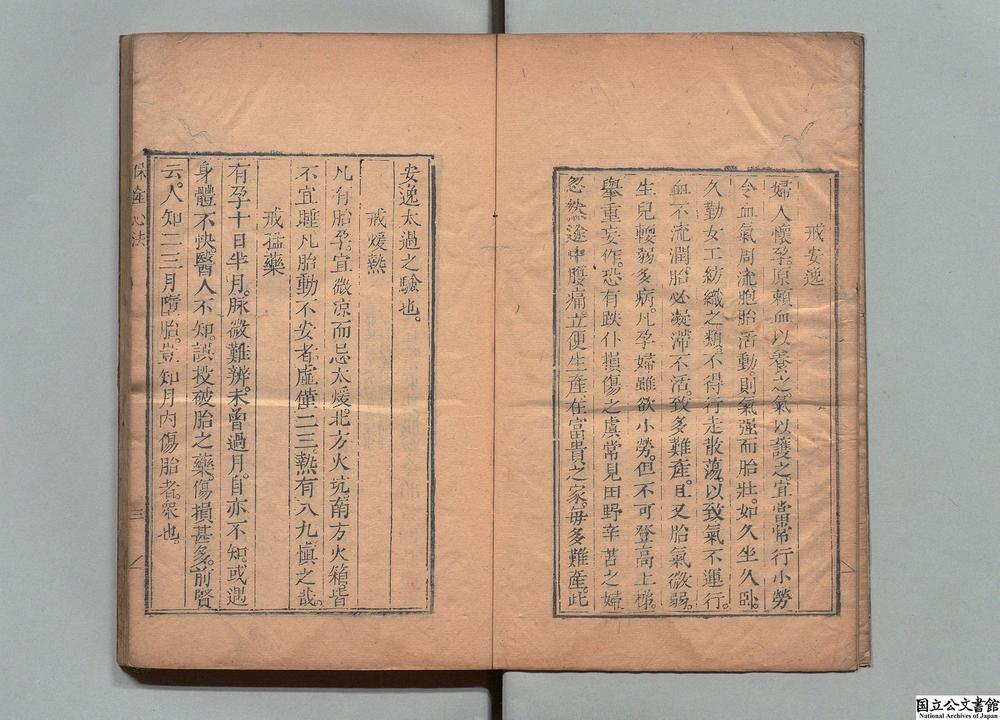 戒安逸
婦人懷孕。原賴血以養之。氣以護之。宜常行小勞
令血氣周流胞胎活動。則氣强而胎壯。如久坐久臥。
久勤女工紡織之類。不得行走散蕩。以致氣不運行。
血不流潤。胎必凝滯不活。致多難產。且又胎氣微弱。
生兒輭弱多病。凡孕婦雖欲小勞。但不可登高上梯。
舉重妄作。恐有跌仆損傷之虞常見田野辛苦之婦
忽然途中腹痛立便生產在富貴之家。每多難產。此
安逸太過之驗也。
戒煖熱
凡有胎孕。宜微凉而忌太煖。北方火坑南方火箱。皆
不宜睡凡胎動不安者。虛僅二三。熱有八九愼之哉。
戒猛藥
有孕十日半月。脉微難辨。未曾過月。自亦不知。或遇
身體不快。醫人不知。誤投破胎之藥。傷損甚多。前賢
云。人知二三月墮胎。豈知月內傷胎者。衆也。
保產心法
三
国立公文書館
National Archives of Japan